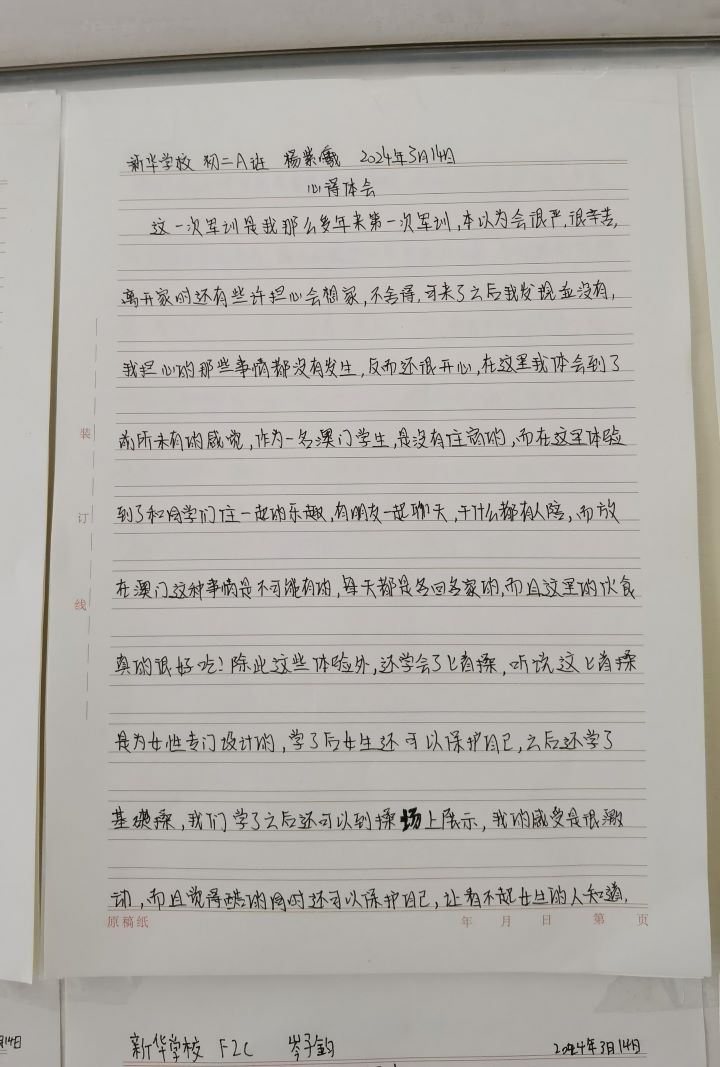 新华学校 初二A班 杨紫 2024年3月14日
心得体会
这一次军训是我那么多年来第一次军训,本以为会很严,很辛苦,
离开家时还有些许担心会想家,不舍得,可来了之后我发现並没有,
我担心的那些事情都没有发生,反而还很开心,在这里我体会到了
装
前所未有的感觉,作为一名澳门学生,是没有住宿的,而在这里体验
订
到了和同学们住一起的乐趣,有朋友一起聊天,干什么都有人陪,而放
在澳门这种事情是不可能有的,每天都是各回各家的,而且这里的饮食
线
真的很好吃!除此这些体验外,还学会了匕首操,听说这匕首操
是为女性专门设计的,学了后女生还可以保护自己,之后还学了
基礎操,我们学了之后还可以到操场上展示,我的感受是很激
动,而且觉得酷的同时还可以保护自己,让看不起女生的人知道,
原稿纸 年 月 日 第 页
月14日
新华学校 F2C 岑子鈞 2024年3月14日